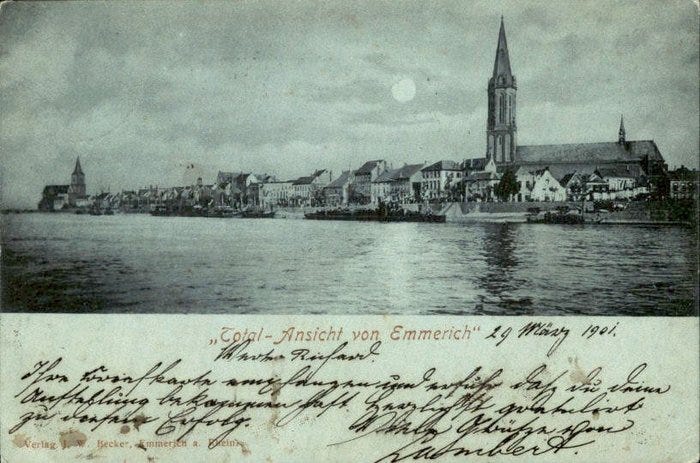 „Total-Ansicht von Emmerich“ 29 März 1901.
Werter Richard.
Ihre Briefkarte empfangen und erfuhr das du deine
Anstellung bekommen hast. Herzlichst gratuliert
zu deinem Erfolg.
von
Lambert.
Verlag J. W. Becker, Emmerich a. Rhein.